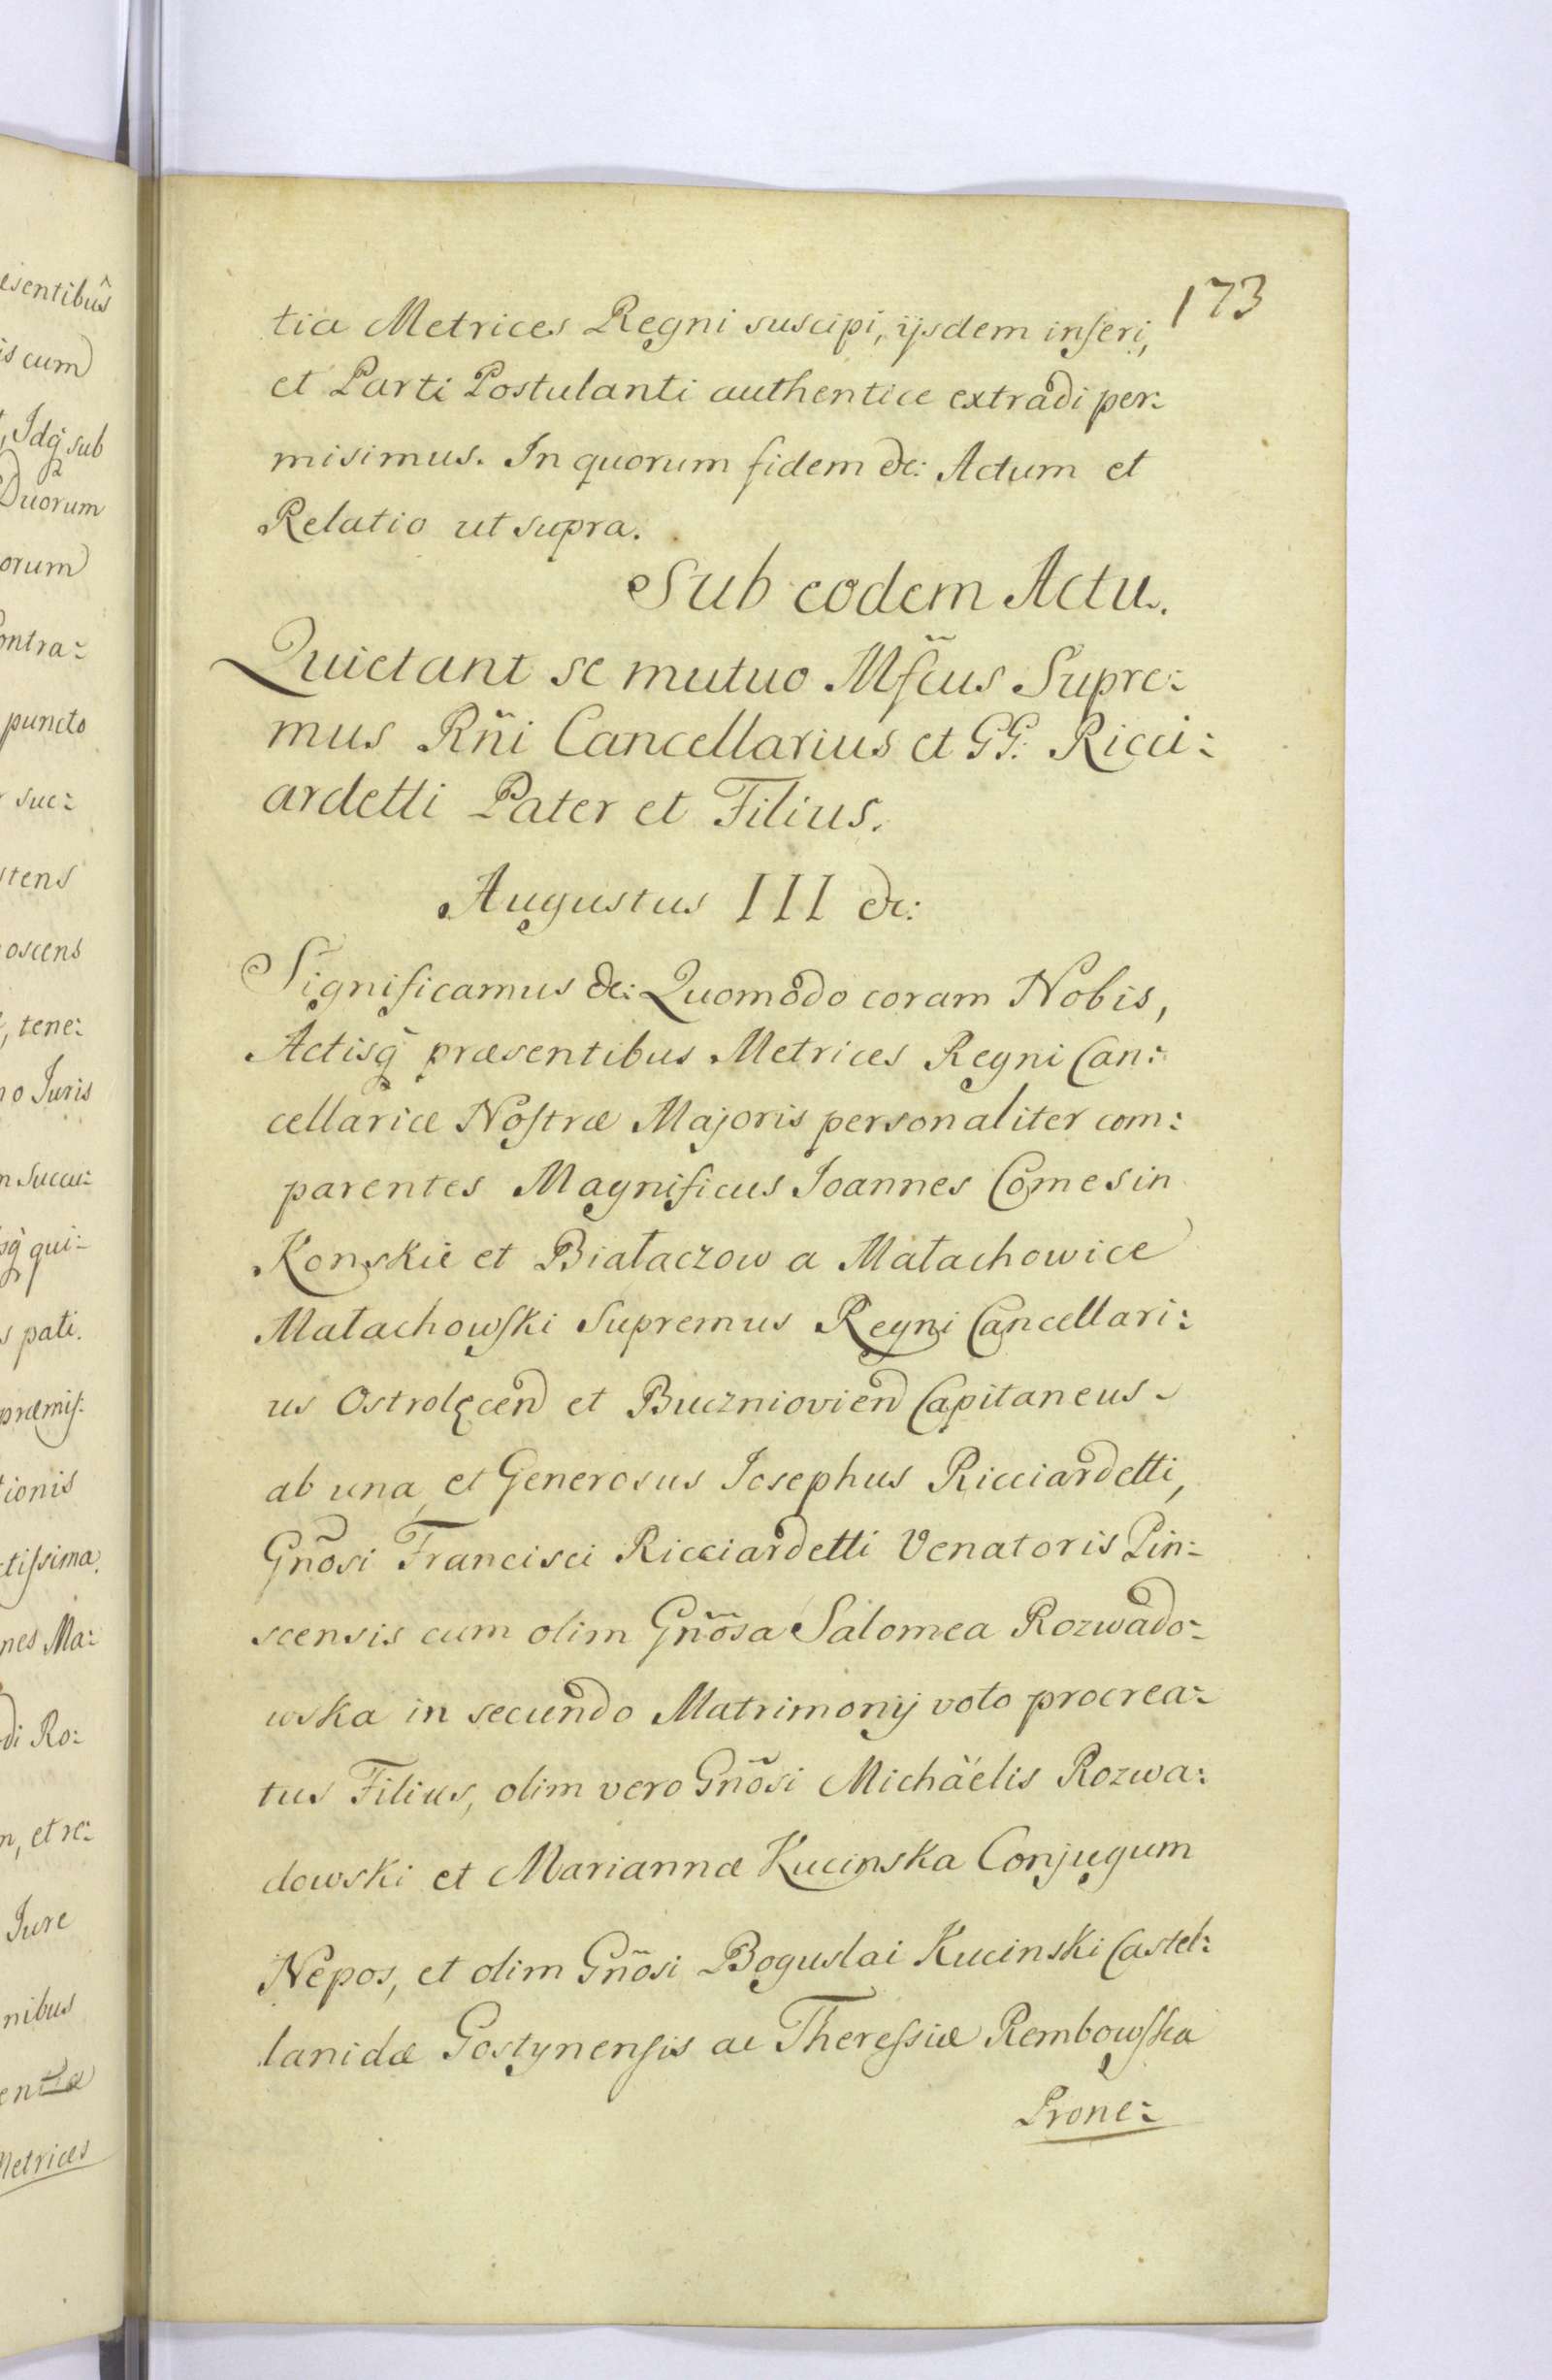 esentibûs
is cum
, Idq̃ sub
Duorum
orum
ontra:
puncto
suc:
stens
oscens
, tene:
o Juris
n Succu:
sq̃ qui:
s pati.
præmiſ:
tionis
tiſsima.
nes Ma:
di Ro:
n, et re:
Jure
nibus
entiæ
Metrices
173
tia Metrices Regni suscipi, ijsdem inſeri,
et Parti Postulanti authentice extradi per:
misimus. In quorum fidem &c: Actum et
Relatio ut supra.
Sub eodem Actu.
Quietant se mutuo Mſc̃us Supre:
mus Rñi Cancellarius et GG: Ricci:
ardetti Pater et Filius.
Augustus III &c:
Significamus &c: Quomodo coram Nobis,
Actisq̃ præsentibus Metrices Regni Can:
cellariæ Noſtræ Majoris personaliter com:
parentes Magnificus Joannes Comes in
Konskie et Białaczow a Małachowice
Małachowſki Supremus Regni Cancellari:
us Ostrolęcen̄ et Buczniovien̄ Capitaneus
ab una, et Generosus Josephus Ricciardetti,
Gñosi Francisci Ricciardetti Venatoris Pin:
scensis cum olim Gñosa Salomea Rozwado:
wska in secundo Matrimonij voto procrea:
tus Filius, olim vero Gñosi Michäelis Rozwa:
dowski et Mariannæ Kucinska Conjugum
Nepos, et olim Gñosi Boguslai Kucinski Castel:
lanidæ Gostynenſis ac Thereſsiæ Rembowſka
Prone: